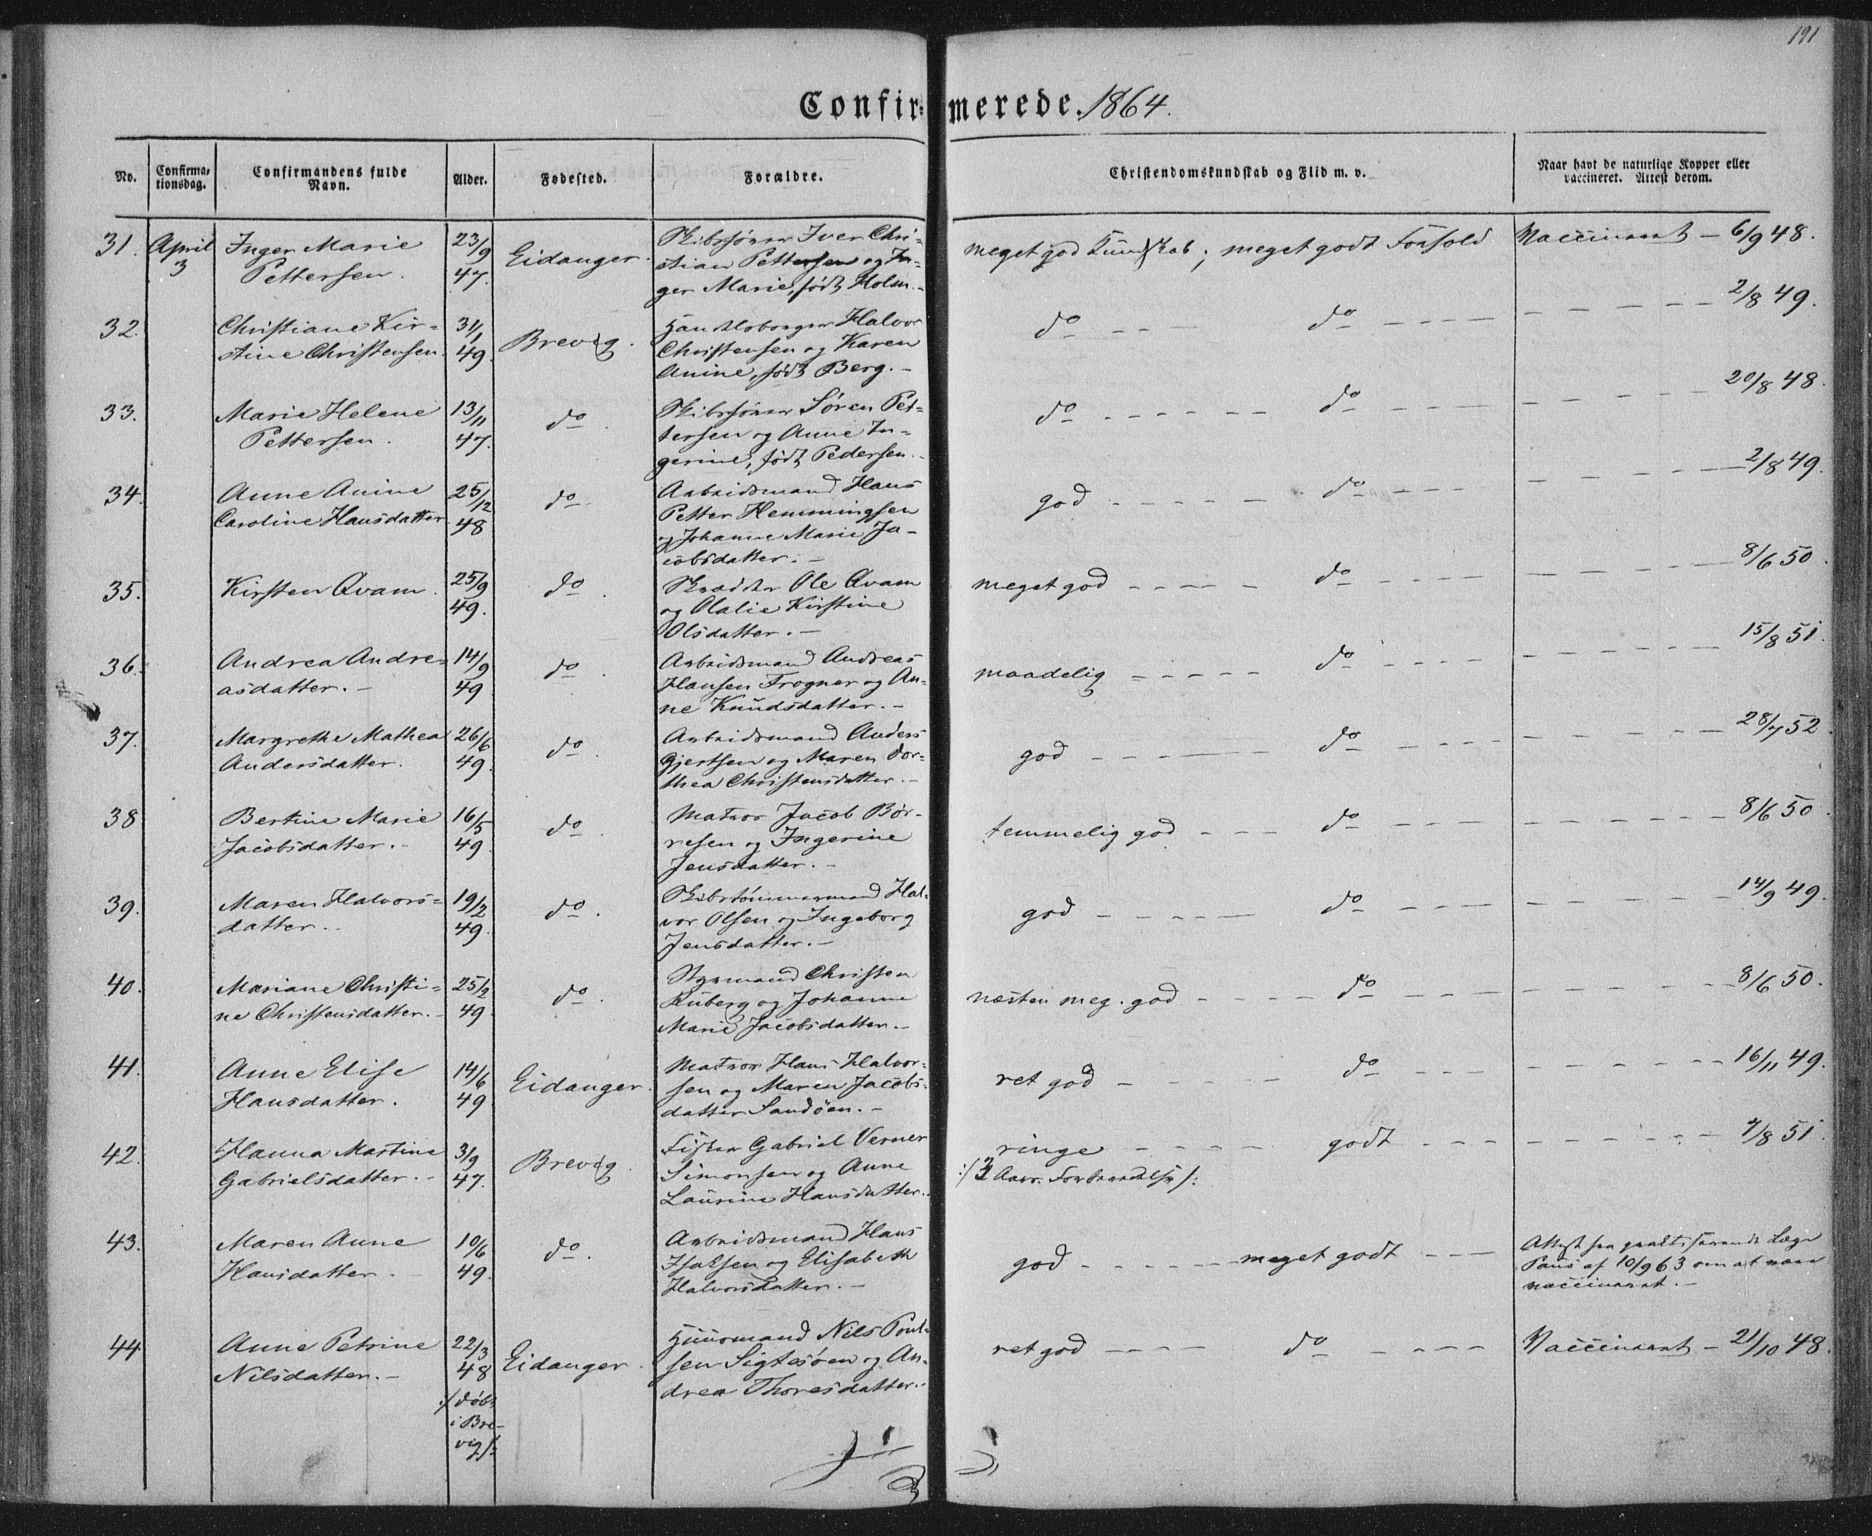 191
Confirmerede. 1864.
No.
Confirmationsdag.
Confirmandens fulde Navn.
Alder.
Fødested.
Forældre.
Christendomskundskab og Flid m. v.
Naar havt de naturlige Kopper eller vaccineret. Attest derom.
31. April 3
Inger Marie
Pettersen.
23/9
47.
Eidanger.
Skibsfører Iver Chri-
stian Pettersen og In-
ger Marie, født Holm.-
meget god Kundskab; meget godt Forhold
Vaccineret - 6/9 48.
32.
Christiane Kir-
stine Christensen
31/1
49.
Brevig.
Halvor
Christensen og Karen
Anine, født Berg.-
do
do
2/8 49.
33.
Marie Helene
Pettersen.
13/11
47.
do.
Skibsfører Søren Pet-
tersen og Anne In-
gerine, født Pedersen.-
do
do
20/8 48.
34.
Anne Anine
Caroline Hansdatter
25/12
48
do.
Arbeidsmand Hans
Petter Hemmingsen
og Johanne Marie Ja-
cobsdatter.-
god
do
2/8 49.
35.
Kirsten Qvam.
25/9
49.
do.
Skrædder Ole Qvam
og Olalie Kirstine
Olsdatter.-
meget god
do
8/6 50.
36.
Andrea Andre-
asdatter.-
14/9
49
do.
Arbeidsmand Andreas
Hansen Frogner og An-
ne Knudsdatter.-
maadelig
do
15/8 51.
37.
Margrethe Mathea
Andersdatter.
26/6
49.
do.
Arbeidsmand Anders
Gjertsen og Maren Dor-
thea Christensdatter.-
god
do
28/7 52.
38
Bertine Marie
Jacobsdatter.-
16/5
49.
do.
Matros Jacob Bør-
resen og Ingerine
Jensdatter.-
temmelig god
do
8/6 50.
39.
Maren Halvors-
datter.-
19/2
49.
do.
Skibstømmermand Hal-
vor Olsen og Ingeborg
Jensdatter.-
god
do
14/9 49.
40.
Mariane Christi-
ne Christensdatter.-
25/2
49.
do.
Styrmand Christen
Kuberg og Johanne
Marie Jacobsdatter.-
næsten meg. god
do
8/6 50.
41.
Anne Elise
Hansdatter.
14/6
49
Eidanger.
Matros Hans Halvor-
sen og Maren Jacobs-
datter Sandøen.-
ret god
do
16/11 49.
42.
Hanna Martine
Gabrielsdatter.-
3/9
47.
Brevig
Fisker Gabriel Verner
Simonsen og Anne
Laurine Hansdatter.
ringe
godt
7/8 51.
Aars Forberedelse /:
43.
Maren Anne
Hansdatter.
10/6
49.
do.
Arbeidsmand Hans
Isaksen og Elisabeth
Halvorsdatter.-
god
meget godt
Attest fra practiserende Læge
Paus af 10/9 63 om at være
vaccineret.-
44
Anne Petrine
Nilsdatter.-
22/3
48
:/ døbt
i Bre-
vig /:
Eidanger.
Huusmand Nils Poul-
sen Sigtesøen og An-
drea Thoresdatter.
ret god
do
Vaccineret - 21/10 48.